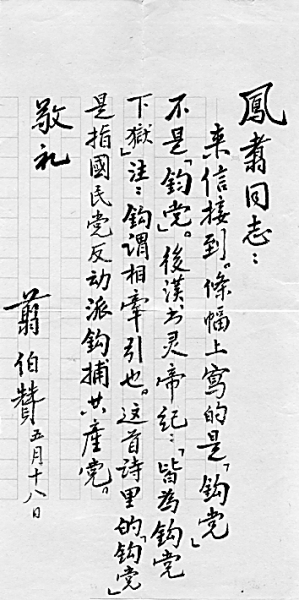 鳳翥同志：
来信接到。條幅上寫的是「鈎党」
不是「鈞党」。後漢书灵帝纪：「皆為鈎党
下獄」注：鈎謂相牽引也。这首詩里的「鈎党」
是指國民党反动派鈎捕共產党。
敬礼
翦伯赞
五月十八日